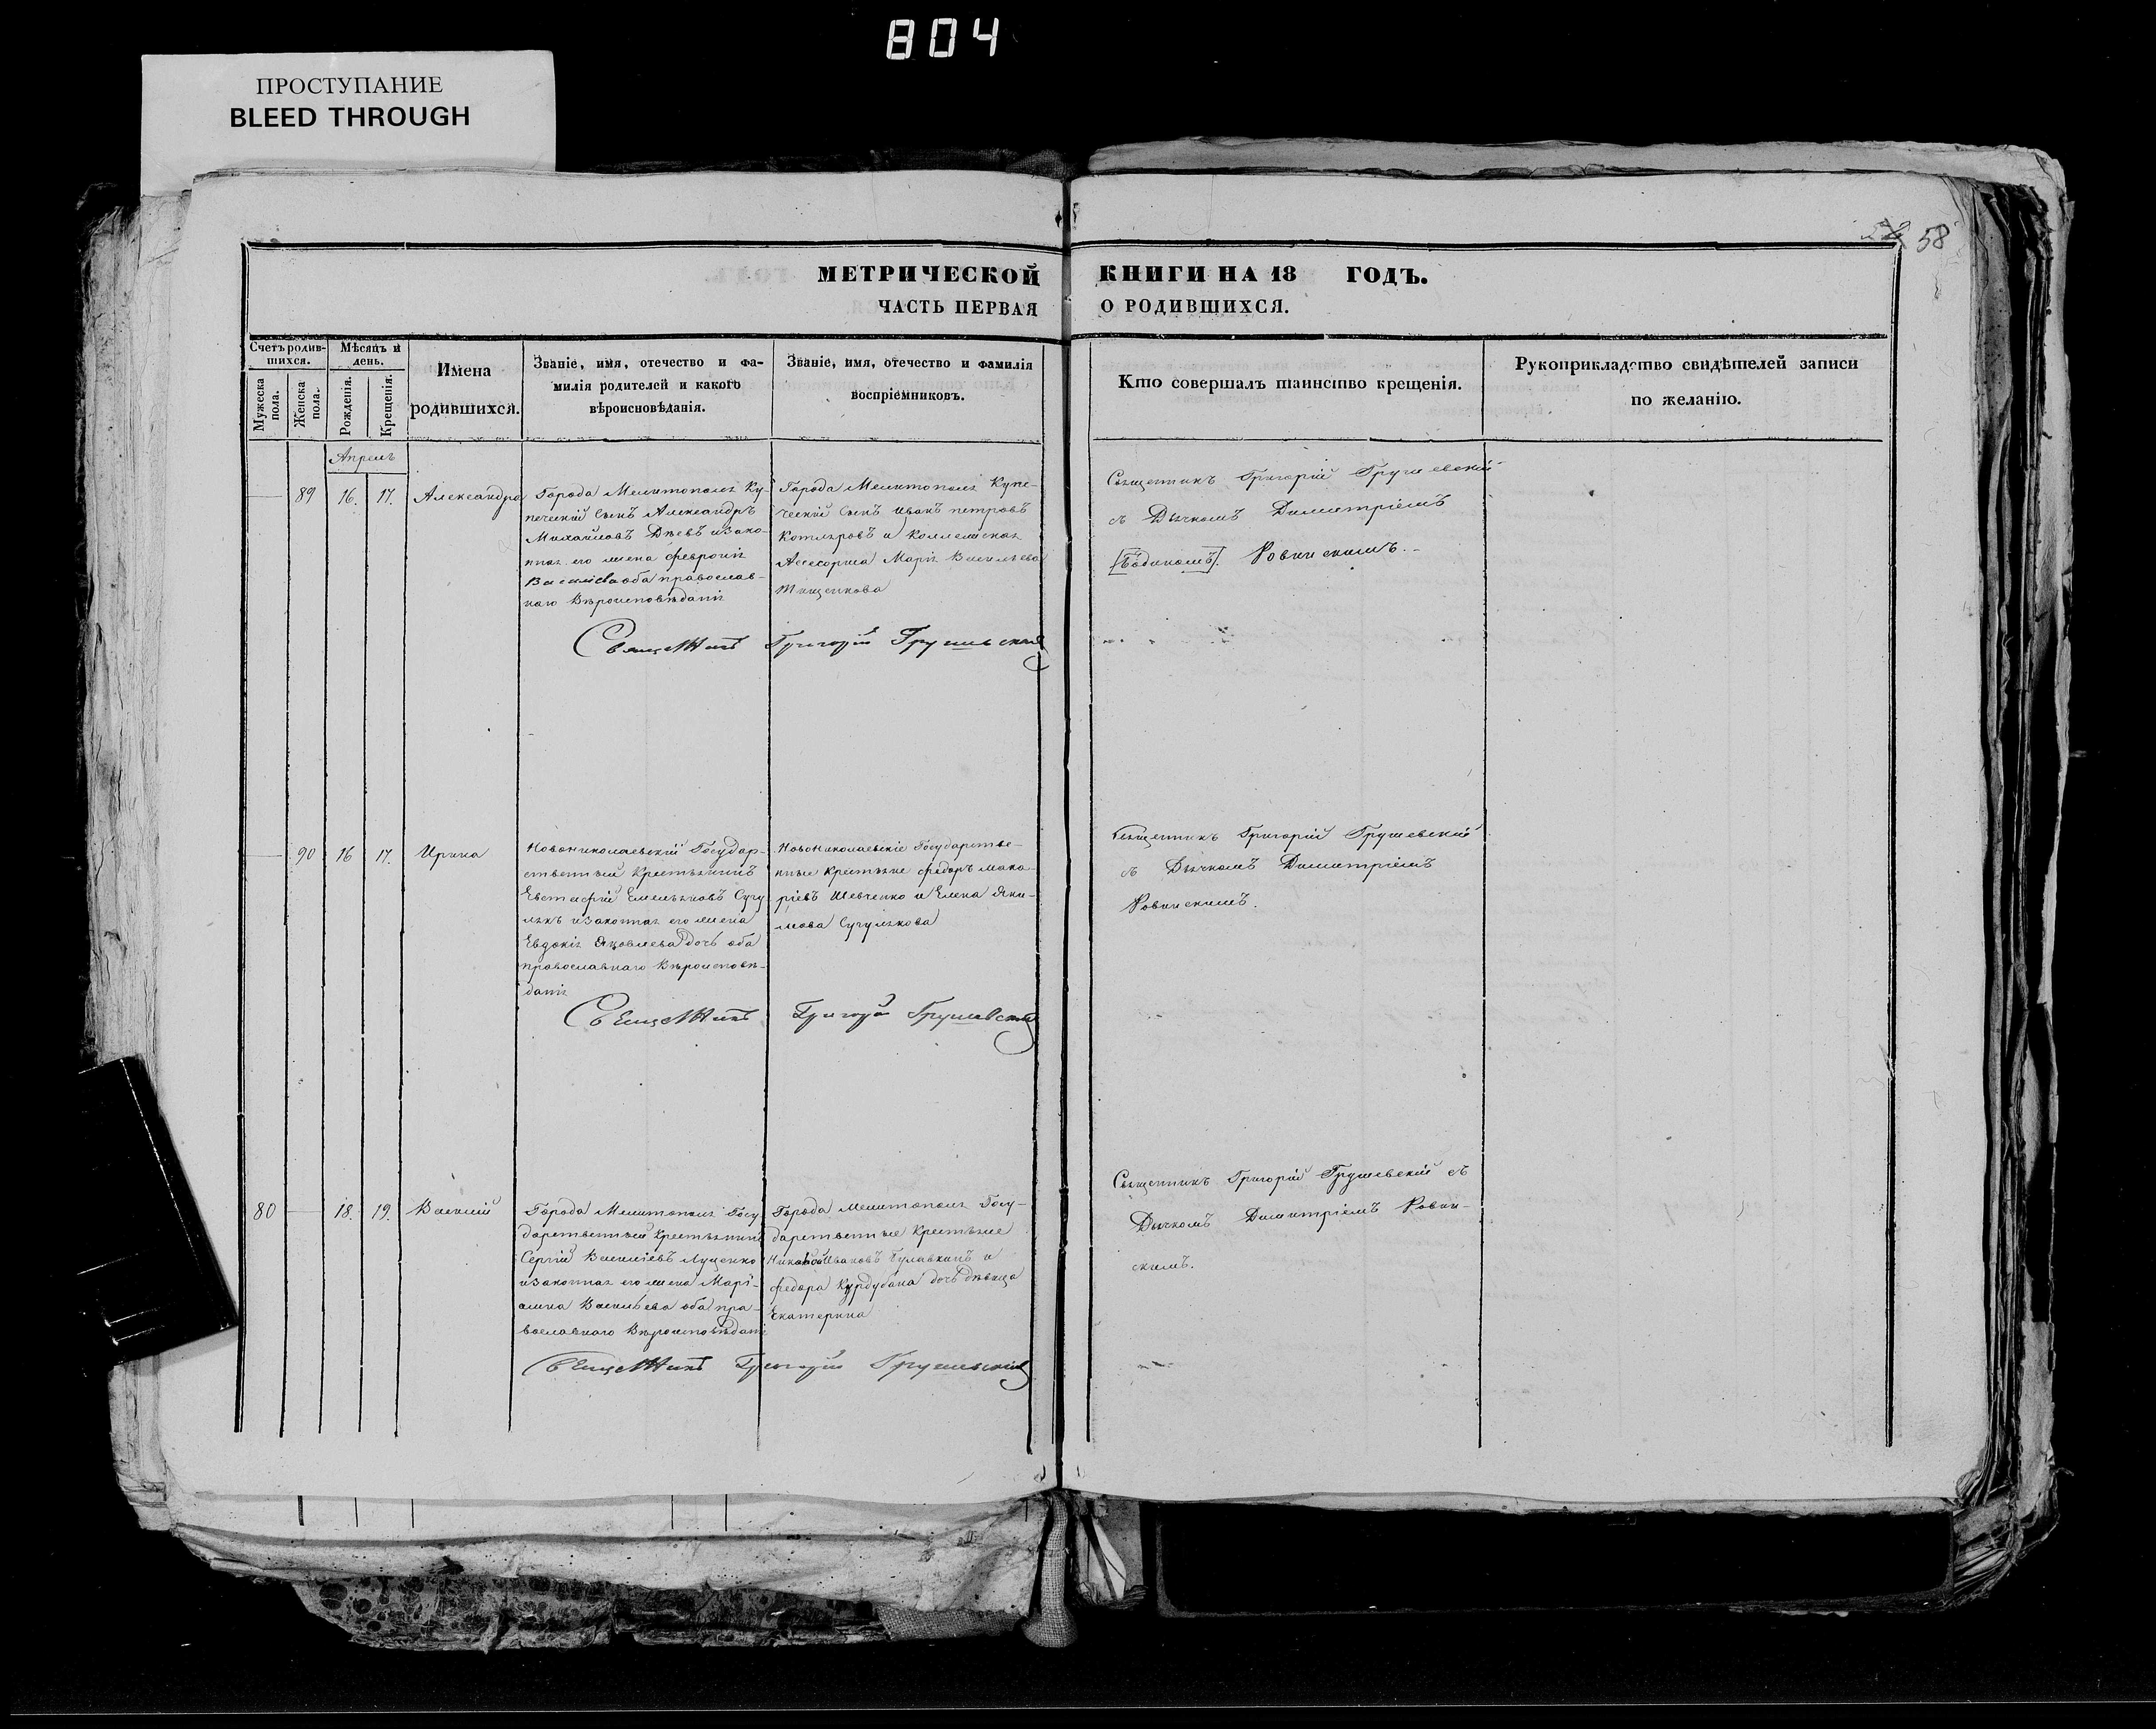 804
ПРОСТУПАНИЕ
BLEED THROUGH
58 58
МЕТРИЧЕСКОЙ КНИГИ НА 18 ГОДЪ.
ЧАСТЬ ПЕРВАЯ О РОДИВШИХСЯ.
Счетъ родив-
шихся.
Мужеска
пола.
Женска
пола.
Мѣсяцъ и
день.
Рожденія.
Крещенія.
Имена
родившихся.
Званіе, имя, отечество и фа-
милія родителей и какого
вѣроисповѣданія.
Званіе, имя, отечество и фамилія
воспріемниковъ.
Кто совершалъ таинство крещенія.
Рукоприкладство свидѣтелей записи
по желанію.
Апрель
89 16. 17. Александра
Города Мелитополя Ку-
печескій Сынъ Александръ
Михайловъ и зако-
нная его жена Февронія
Василіева оба православ-
наго Вѣроисповѣданія
Города Мелитополя Купе-
ческій Сынъ Иванъ петровъ
Котляровъ и Коллежская
Асесорша Марія Васильева
Тищенкова
Священникъ Григорій Грушевскій
съ Дьячкомъ Димитріемъ
Ровинскимъ.
Священникъ Григорій Грушевскій
90 16 17. Ирина
Новониколаевскій Государ-
ственный Крестьянинъ
Евстафій Емельяновъ Сугу
лякъ и законная его жена
Евдокія Яковлева дочь оба
православнаго Вѣроисповѣ-
данія
Новониколаевскіе Государстве-
нные Крестьяне Федоръ Мака-
ріевъ Шевченко и Елена Яки-
мова Сугулякова
Священникъ Григорій Грушевскій
съ Дьячкомъ Димитріемъ
Ровинскимъ.
Священникъ Григорій Грушевскій
80 18. 19. Василій
Города Мелитополя Госу
дарственный Крестьянинъ
Сергій Василіевъ Луценко
и законная его жена Марі-
амна Васильева оба пра-
вославнаго Вѣроисповѣданія
Города Мелитополя Госу-
дарственные Крестьяне
Ивановъ Булавкинъ и
Федора Курдубана дочь дѣвица
Екатерина
Священникъ Григорій Грушевскій съ
Дьячкомъ Димитріемъ Ровин-
скимъ.
Священникъ Григорій Грушевскій